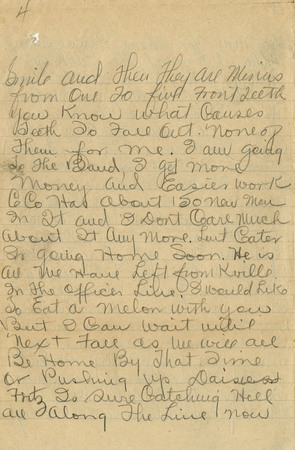 4
Smile and Then They Are Minus
from One To five Front Teeth
You Know what Causes
Teeth To Fall Out. None of
Them for me. I am going
To The Band, I get more
Money and Easier work
C Co Has About 150 New Men
In It and I Dont Care Much
About It Any More. Lut Cater
Is going Home Soon. He is
All We Have Left from Kville
In The Officer Line. I would Like
To Eat a Melon with you
But I Can wait until
Next Fall as We will all
Be Home By That Time
Or Pushing Up Daisies
Fritz Is Sure Catching Hell
All Along The Line Now